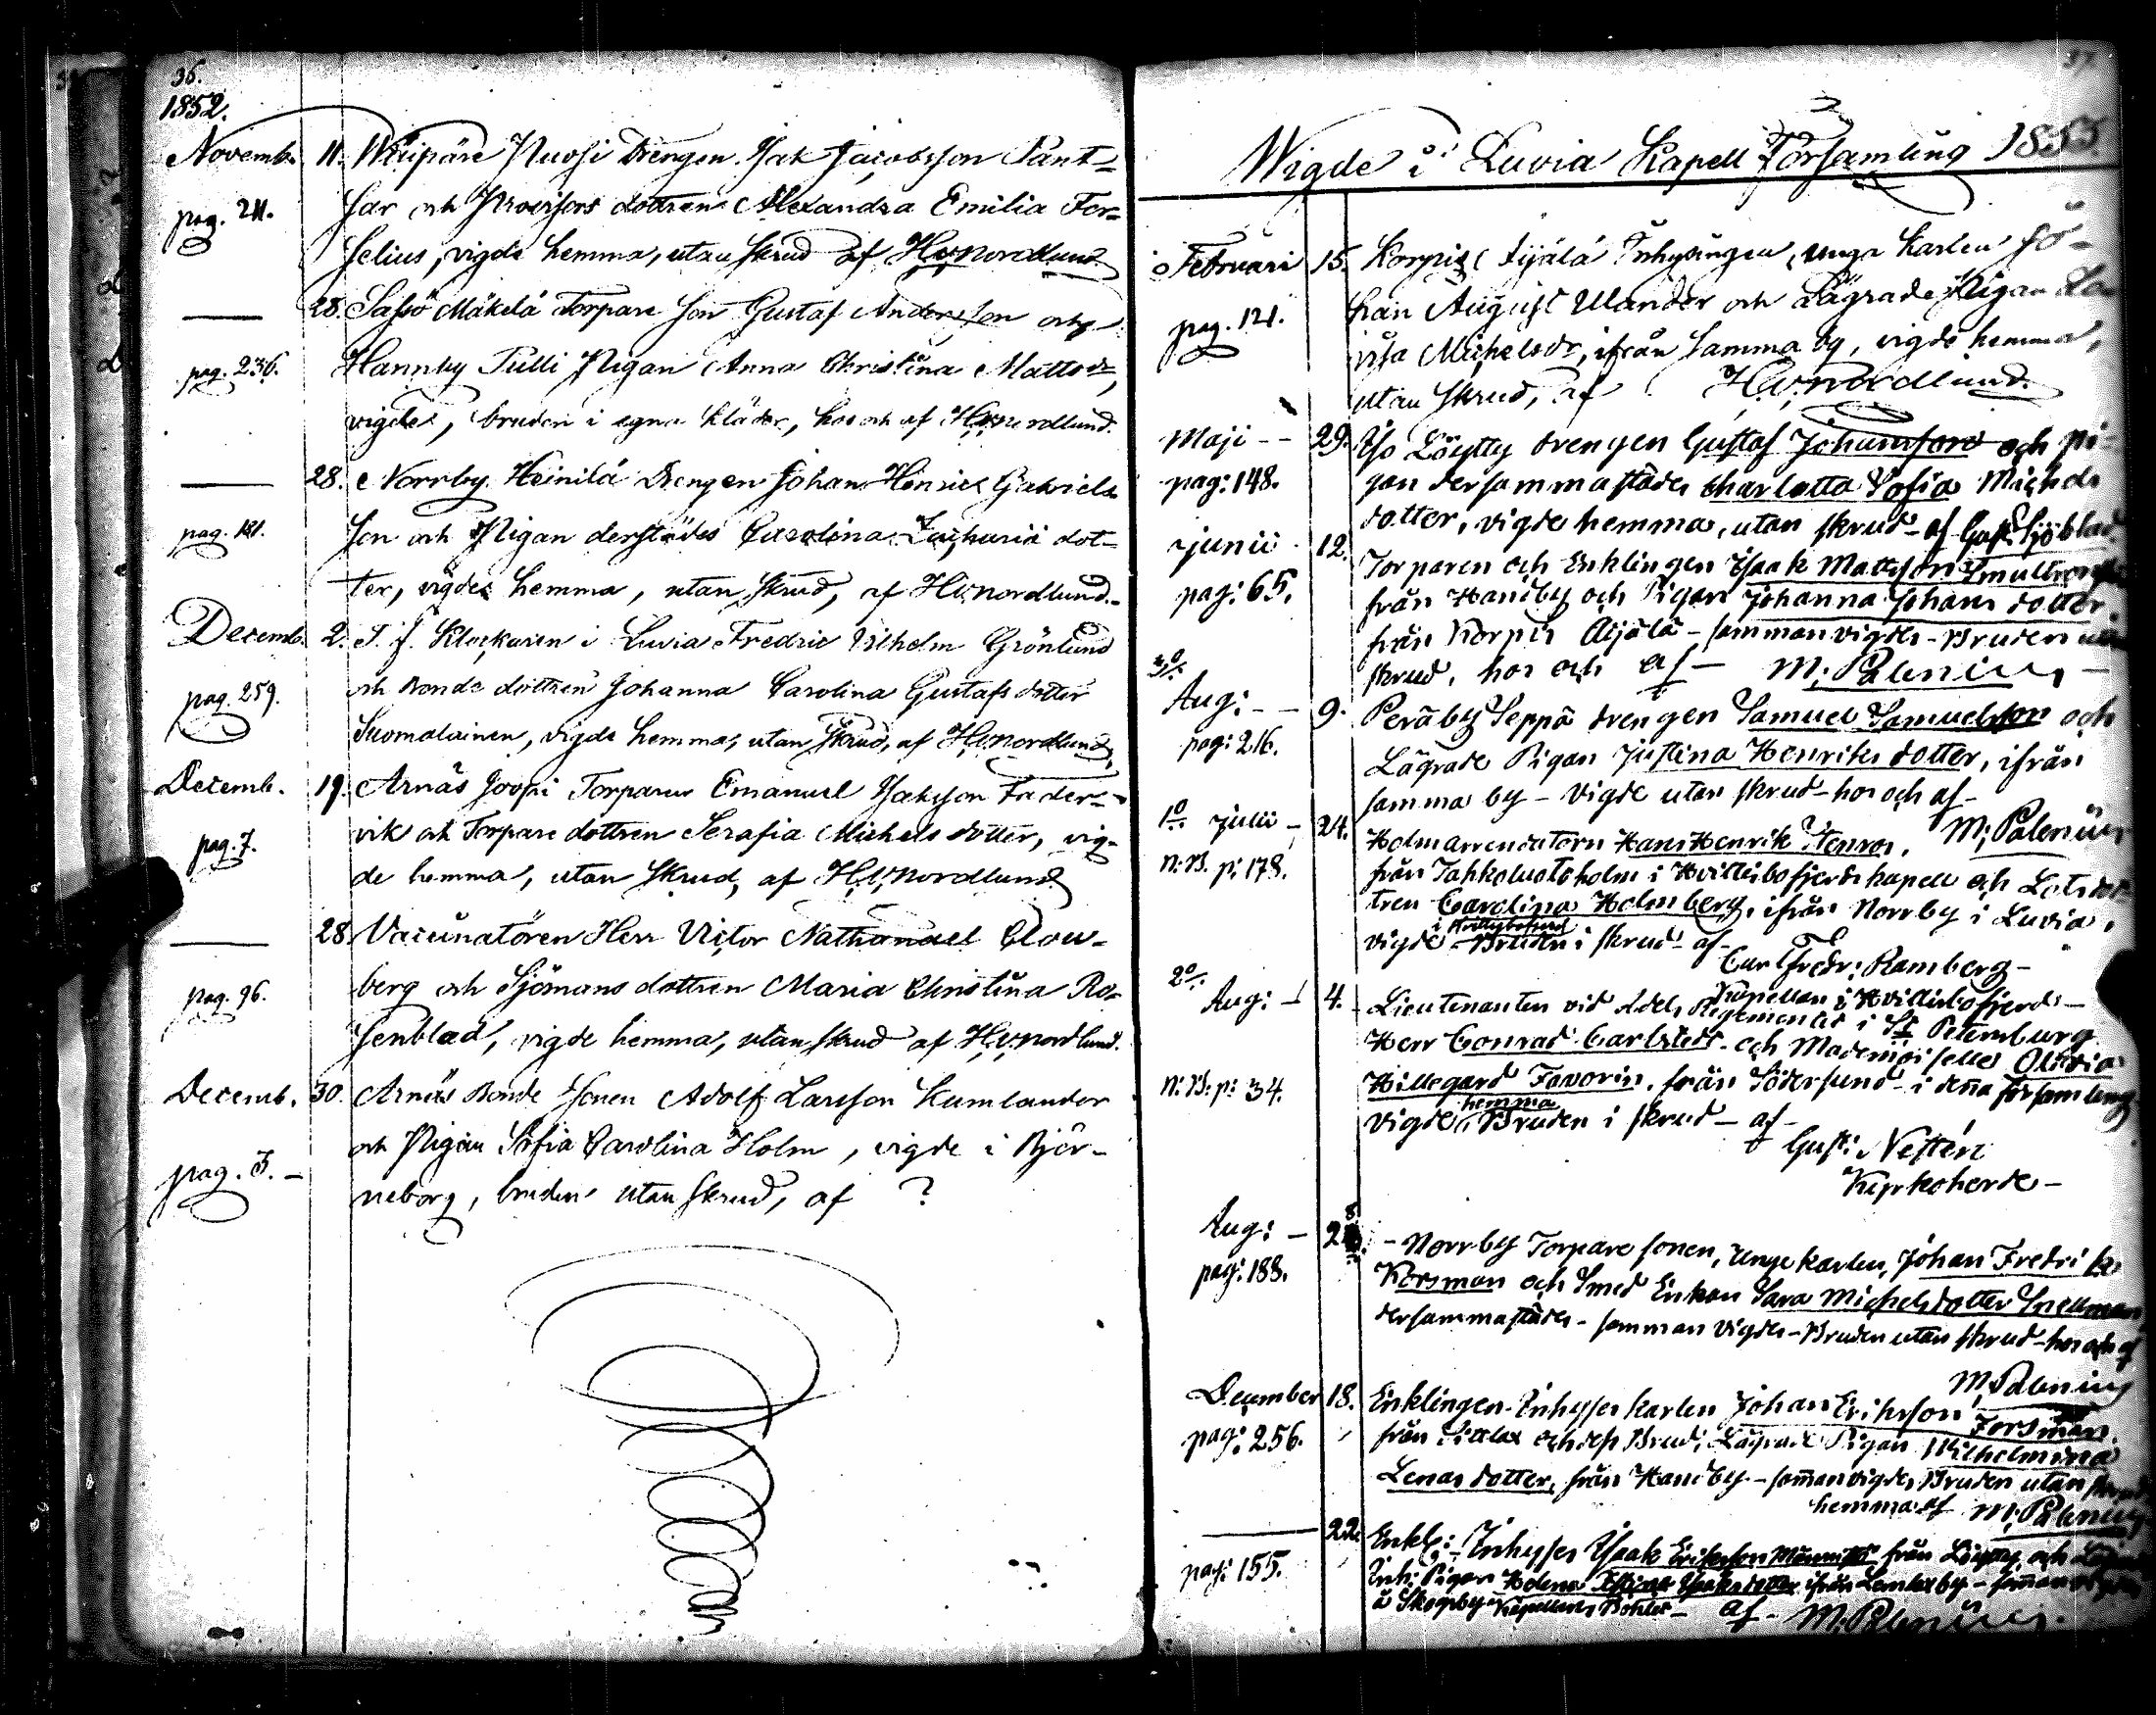 36.
1852.
Novemb. 11. Wiipäre Nuosi Drengen Isak Jacobsson Sant-
pag. 211. har och Provisors dottren Alexandra Emilia For-
selius, vigde hemma, utan skrud af H.V. Nordlund
28. Sassö Mäkelä Torpare son Gustaf Andersson och
pag. 236. Hannby Pulli Pigan Anna Christina Mattsdr,
vigdes, bruden i egna kläder, hos och af H.V. Nordlund.
28. Norrby Heinilä Drengen Johan Henric Gabriels
pag. 181. son och Pigan derstädes Carolina Zachariä dot-
ter, vigdes hemma, utan skrud, af H.V. Nordlund.
Decemb. 2. T. f. Klockaren i Luvia Fredric Vilhelm Grönlund
pag. 259. och Bonde dottren Johanna Carolina Gustafs dotter
Suomalainen, vigde hemma, utan skrud, af H.V. Nordlund
Decemb. 19. Arnäs Joopi Torparen Emanuel Isaksson Fader-
pag. 7. vik och Torpare dottren Serafia Michels dotter, vig-
de hemma, utan skrud, af H.V. Nordlund
28. Vaccinatören Herr Victor Nathanael Clou-
pag. 96. berg och Sjömans dottren Maria Christina Ro-
senblad, vigde hemma, utan skrud af H.V. Nordlund.
Decemb. 30. Arnäs Bonde sonen Adolf Larsson Kumlander
pag. 3. och Pigan Sofia Carolina Holm, vigde i Björ-
neborg, bruden utan skrud, af ?
37.
Wigde i Luvia Kapell Församling 1853.
Februari 15. Korpis Äijälä Inhysingen, unga Karlen Jo-
pag. 121. han August Ulander och Lägrade Pigan Lo
visa Michelsdr, ifrån samma by, vigde hemma,
utan skrud, af H.V. Nordlund.
Maji 29. Iso Löytty drengen Gustaf Johansson och pi-
pag: 148. gan dersammastädes Charlotta Sofia Michels
dotter, vigde hemma, utan skrud af Gust. Sjöblad
Junii 12. Torparen och Enklingen Isaak Mattsson
pag: 65. från Hanby och Pigan Johanna Johans dotter,
från Korpis Äijälä - samman vigdes - Bruden utan
skrud, hos och af - M: Palenius -
3o
Aug: 9. Peräby Seppä drengen Samuel Samuelsson och
pag: 216. Lägrade Pigan Justina Henriks dotter, ifrån
samma by - vigde utan skrud - hos och af -
M: Palenius
1o Julii 24. Holmarrendatorn Hans Henrik Stenros,
N:B. p: 178. från Tahkoluoto holm i Hvittisbofjerds kapell och Lots dot-
tren Carolina Holmberg, ifrån Norrby i Luvia,
i Hvittisbofjerd
vigde - Bruden i skrud - af -
Carl Fredr: Ramberg -
Kapellan i Hvittisbofjerd -
2o
Aug: 4. Lieutenanten vid Regementet i St Petersburg
Herr Conrad Carlstedt - och Mademoiselle Olivia
N:B: p: 34. Hillegard Favorin, från Södersund - i denna församling
hemma
vigde, Bruden i skrud - af -
Gust: Nestén
Kyrkoherde -
Aug: 28. - Norrby Torpare sonen, Unge karlen, Johan Fredrik
pag: 188. Korsman och Smed Enkan Sara Michelsdotter Snellman
dersammastädes - samman vigdes - Bruden utan skrud - hos och af
M. Palenius
December 18. Enklingen Inhyses karlen Johan Eriksson Forsman,
pag: 256. från och dess Brud; Lägrade Pigan Wilhelmina
Lenas dotter, från Hanby - samanvigdes Bruden utan skrud
hemma af M: Palenius
22. Enkl: Inhyses Isaak Eriksson från Löytty och
pag: 155. Inh: Pigan Helena Isaks dotter ifrån Lemlax by -
å Skogsby Kapellans Bohlet - af - M. Palenius.